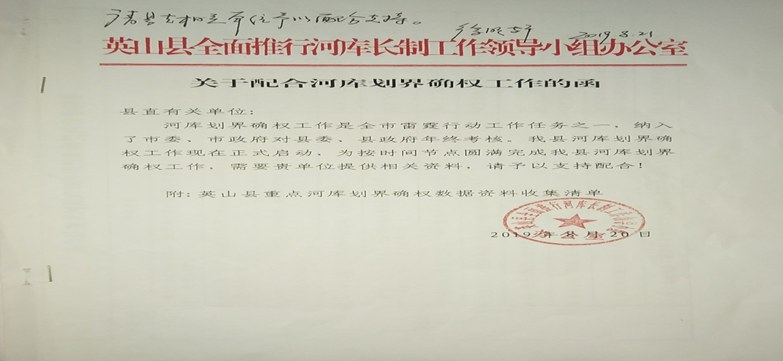 请县直相关单位予以配合支持。
2019.8.21
英山县全面推行河库长制工作领导小组办公室
关于配合河库划界确权工作的函
县直有关单位:
河库划界确权工作是全市雷霆行动工作任务之一,纳入
了市委、市政府对县委、县政府年终考核。我县河库划界确
权工作现在正式启动,为按时间节点圆满完成我县河库划界
确权工作,需要贵单位提供相关资料,请予以支持配合!
附:英山县重点河库划界确权数据资料收集清单
2019年8月20日
办公室